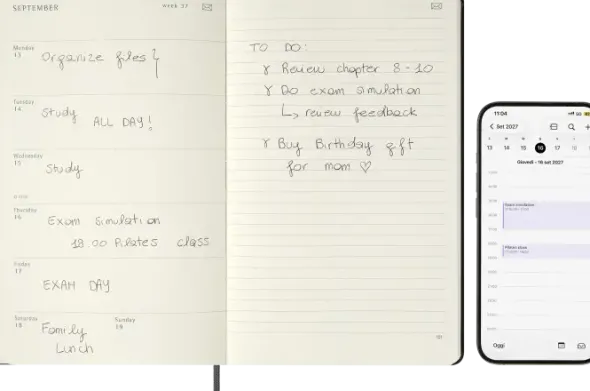 SEPTEMBER
week 37
Monday
13
Organize files!
Tuesday
14
Study
ALL DAY!
Wednesday
15
Study
Thursday
16
Exam simulation
18:00 Pilates class
Friday
17
EXAM DAY
Saturday
18
Sunday
19
Family
Lunch
TO DO:
Review chapter 8-10
Do exam simulation
↳ review feedback
Buy Birthday gift
for mom ♡
11:04
Set 2027
13 14 15 16 17 18
Giovedì – 16 set 2027
Exam simulation
Pilates class
Oggi